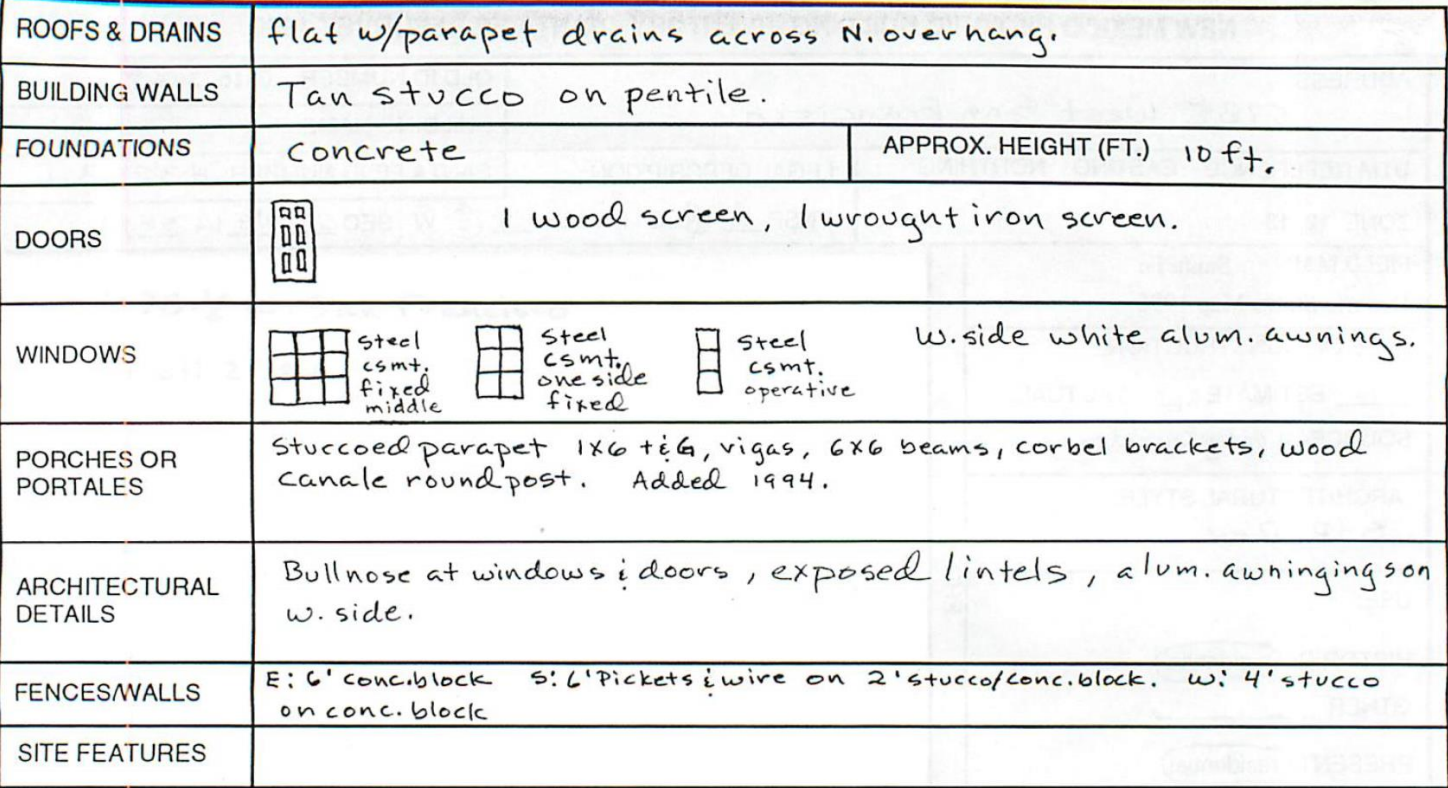 ROOFS & DRAINS flat w/parapet drains across N. overhang.
BUILDING WALLS Tan stucco on pentile.
FOUNDATIONS Concrete APPROX. HEIGHT (FT.) 10 ft.
DOORS 1 wood screen, 1 wrought iron screen.
WINDOWS steel csmt. fixed middle
steel csmt. one side fixed
steel csmt. operative
W. side white alum. awnings.
PORCHES OR PORTALES Stuccoed parapet 1x6 t&G, vigas, 6x6 beams, corbel brackets, wood
canale round post. Added 1994.
ARCHITECTURAL DETAILS Bullnose at windows & doors, exposed lintels, alum. awningings on
w. side.
FENCES/WALLS E: 6' conc. block S: 6' Pickets & wire on 2' stucco/conc. block. w: 4' stucco
on conc. block
SITE FEATURES